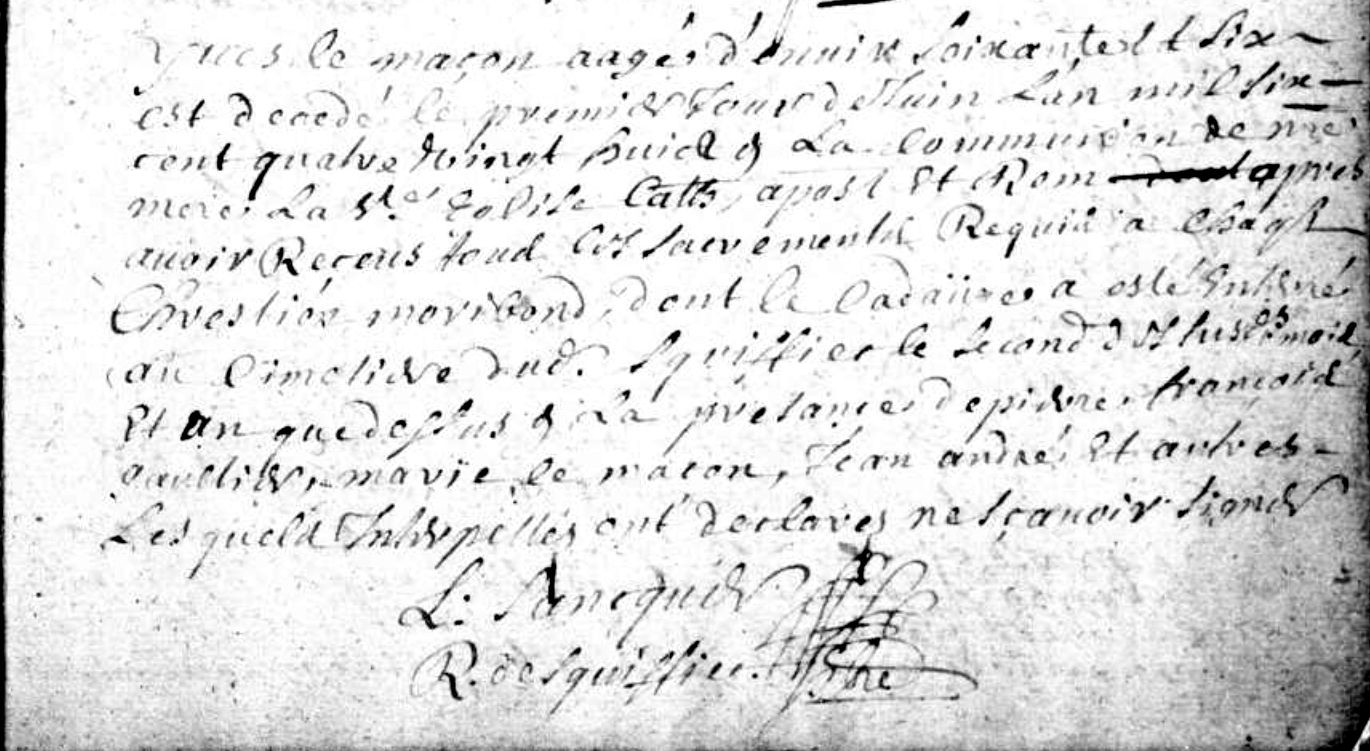 yves le maçon aagé d'enuix soixante et six
est decedé le premier Jour de Juin L'an mil six
cent quatre vingt huict & La Communion de nre
mere La Ste Eglise Cath, apost Et Rom dont apres
auoir Receus toud les sacrements Requis a chaqt
Chrestien moribond, dont le Cadaüre a esté Enterré
au Cimetiere dud. Squiffiec le second dessusds mois
Et an que dessus & La presance de pierre françois
gaultier, marie le macon, Jean andré Et autres
Les quels Interpellés ont declares ne sçauoir signer
L: Sancquer
R. de Squiffiec. Ptre